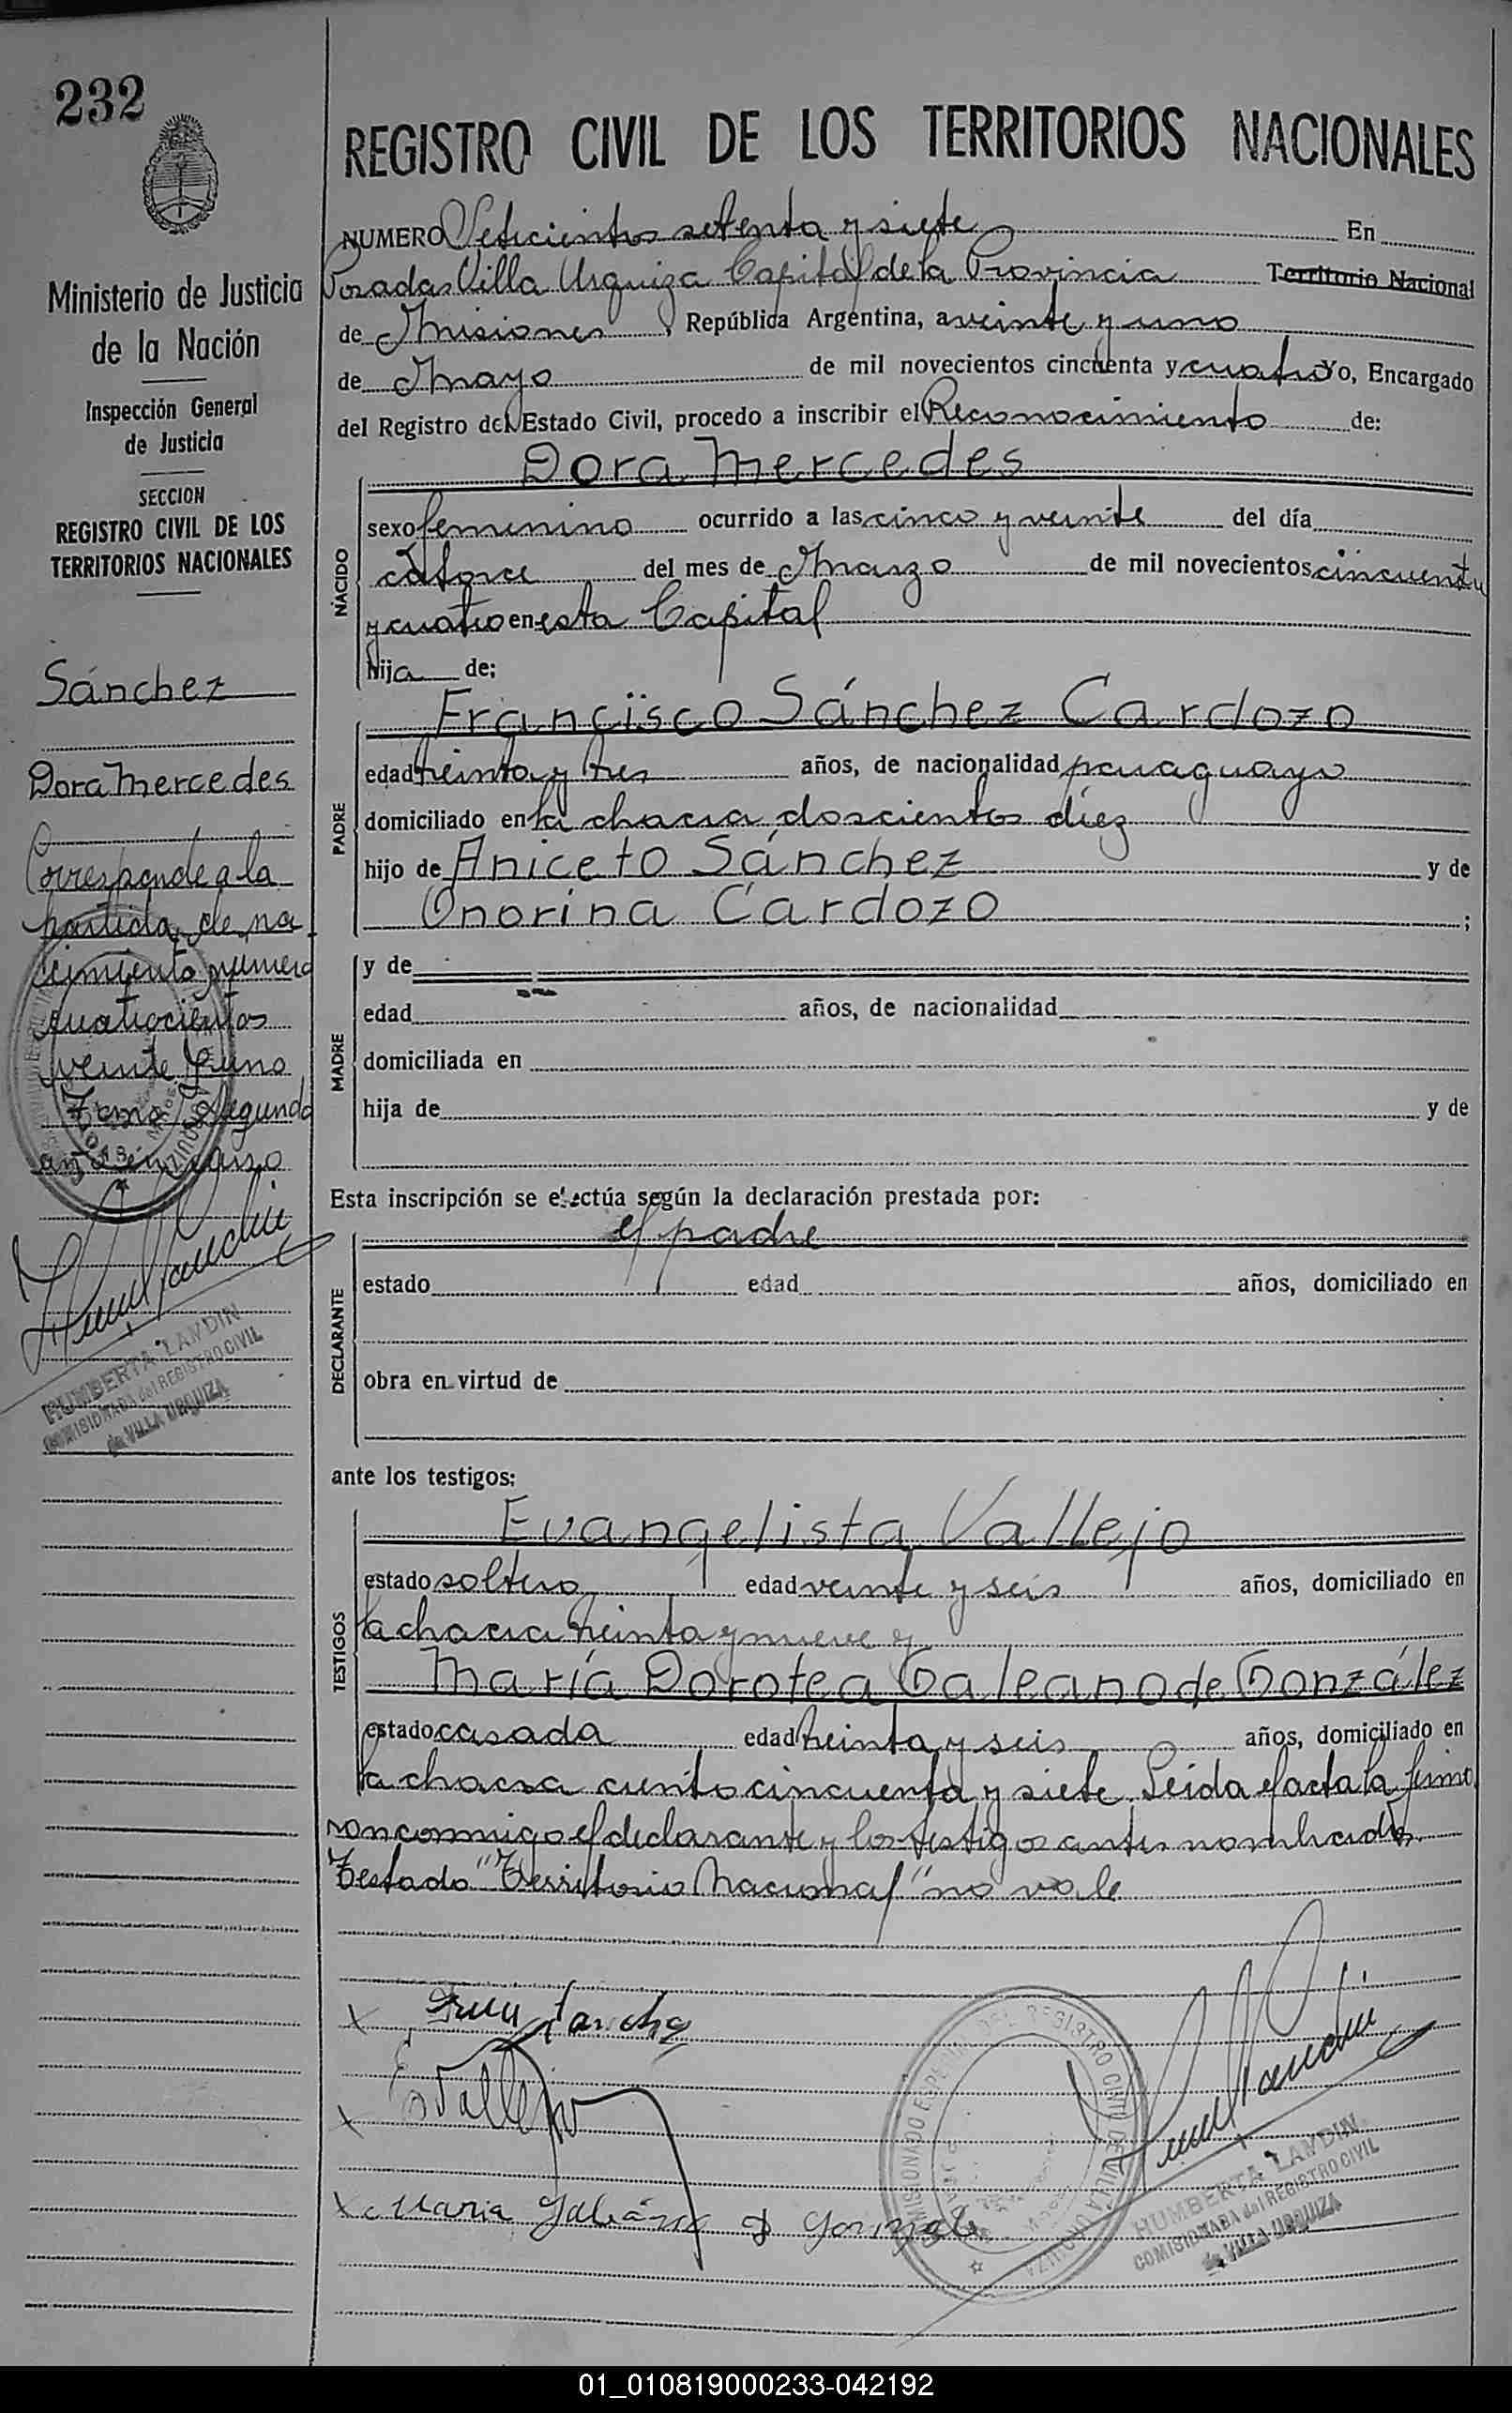 232
REGISTRO CIVIL DE LOS TERRITORIOS NACIONALES
Ministerio de Justicia
de la Nación
Inspección General
de Justicia
SECCION
REGISTRO CIVIL DE LOS
TERRITORIOS NACIONALES
Sánchez
Dora Mercedes
Corresponde a la
partida de na
cimiento numero
cuatrocientos
veinte y uno
Tomo Segundo
año en curso
HUMBERTA LANDIN
COMISIONADA del REGISTRO CIVIL
de VILLA URQUIZA
NUMERO setenta y siete En
Posadas Villa Urquiza Capital de la Provincia Territorio Nacional
de Misiones, República Argentina, a veinte y uno
de Mayo de mil novecientos cincuenta y cuatro Yo, Encargado
del Registro del Estado Civil, procedo a inscribir el Reconocimiento de:
NACIDO
Dora Mercedes
sexo femenino ocurrido a las cinco y veinte del día
catorce del mes de Marzo de mil novecientos cincuenta
y cuatro en esta Capital
hija de:
PADRE
Francisco Sánchez Cardozo
edad treinta y tres años, de nacionalidad paraguayo
domiciliado en la chacra doscientos diez
hijo de Aniceto Sánchez y de
Onorina Cardozo ;
MADRE
y de
edad años, de nacionalidad
domiciliada en
hija de y de
Esta inscripción se efectúa según la declaración prestada por:
DECLARANTE
el padre
estado edad años, domiciliado en
obra en virtud de
ante los testigos:
TESTIGOS
Evangelista Vallejo
estado soltero edad veinte y seis años, domiciliado en
la chacra treinta y nueve y
María Dorotea Galeano de González
estado casada edad treinta y seis años, domiciliado en
la chacra ciento cincuenta y siete. Leida el acta la firma
ron conmigo el declarante y los testigos antes nombrados.
Testado "Territorio Nacional" no vale
x Sanchez
x E Vallejo
x Maria
HUMBERTA LANDIN
COMISIONADA del REGISTRO CIVIL
de VILLA URQUIZA
01_010819000233-042192